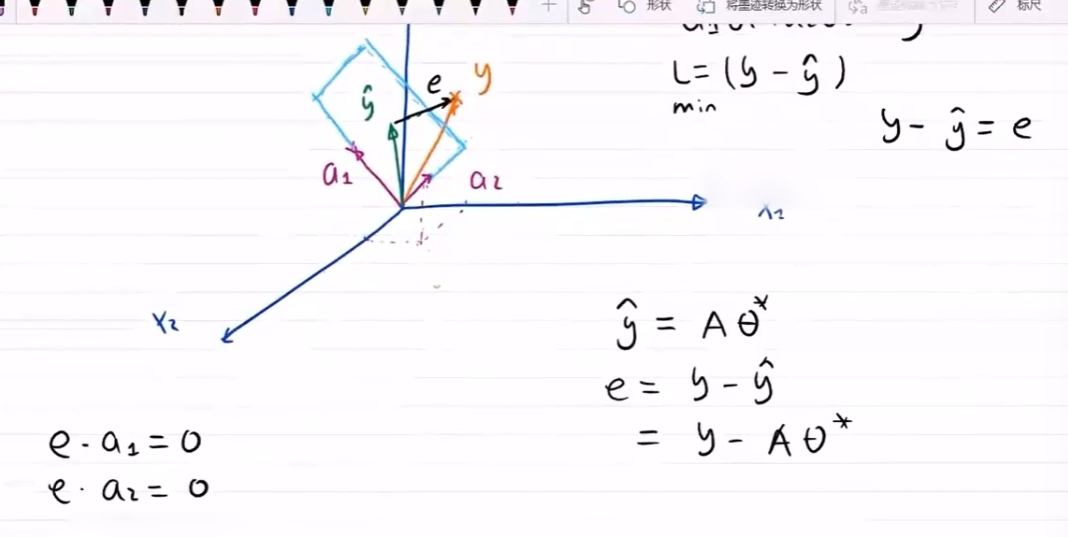 形状
将墨迹转换为形状
标尺
L = (y - ŷ)
min
y - ŷ = e
e
y
ŷ
a₁
a₂
x₂
ŷ = Aθ*
e = y - ŷ
= y - Aθ*
e · a₁ = 0
e · a₂ = 0